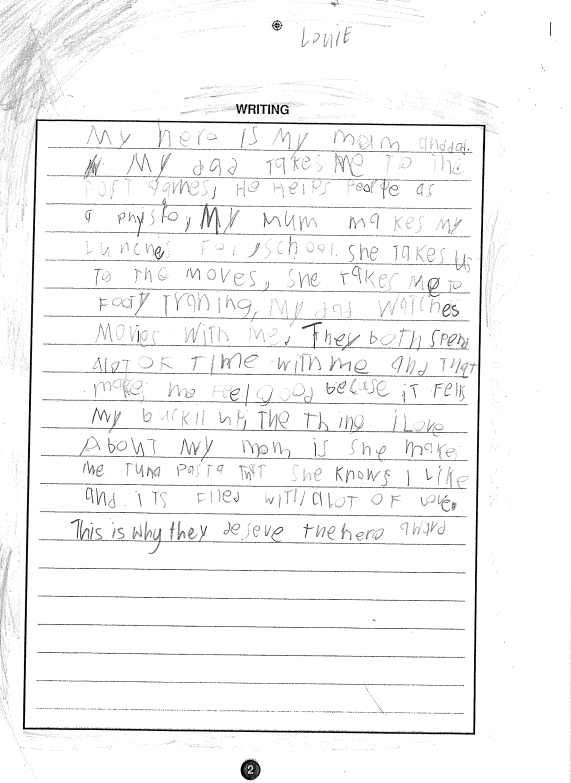 LouiE
WRITING
My hero is My mom and dad.
My dad takes Me To The
fost games, He Helps people as
a physio, My mum makes my
Lunches For school. she Takes us
To The moves, She Takes Me To
Footy Traning, My dad watches
Movies with me. They both spend
alot OF Time with me and That
makes me Feel good becuse iT Fells
My buckit up, The Thing i Love
About My mom is she makes
me Tuna pasta That She knows I Like
and iTs Filled with alot OF love.
This is why they deseve the hero award
2